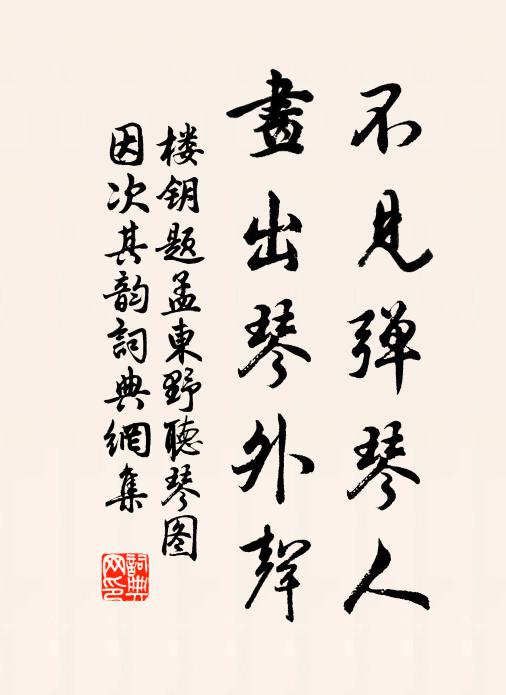 不见弹琴人
畫出琴外聲
楼钥题孟東野聽琴图
因次其韵詞典網集
詞典網印